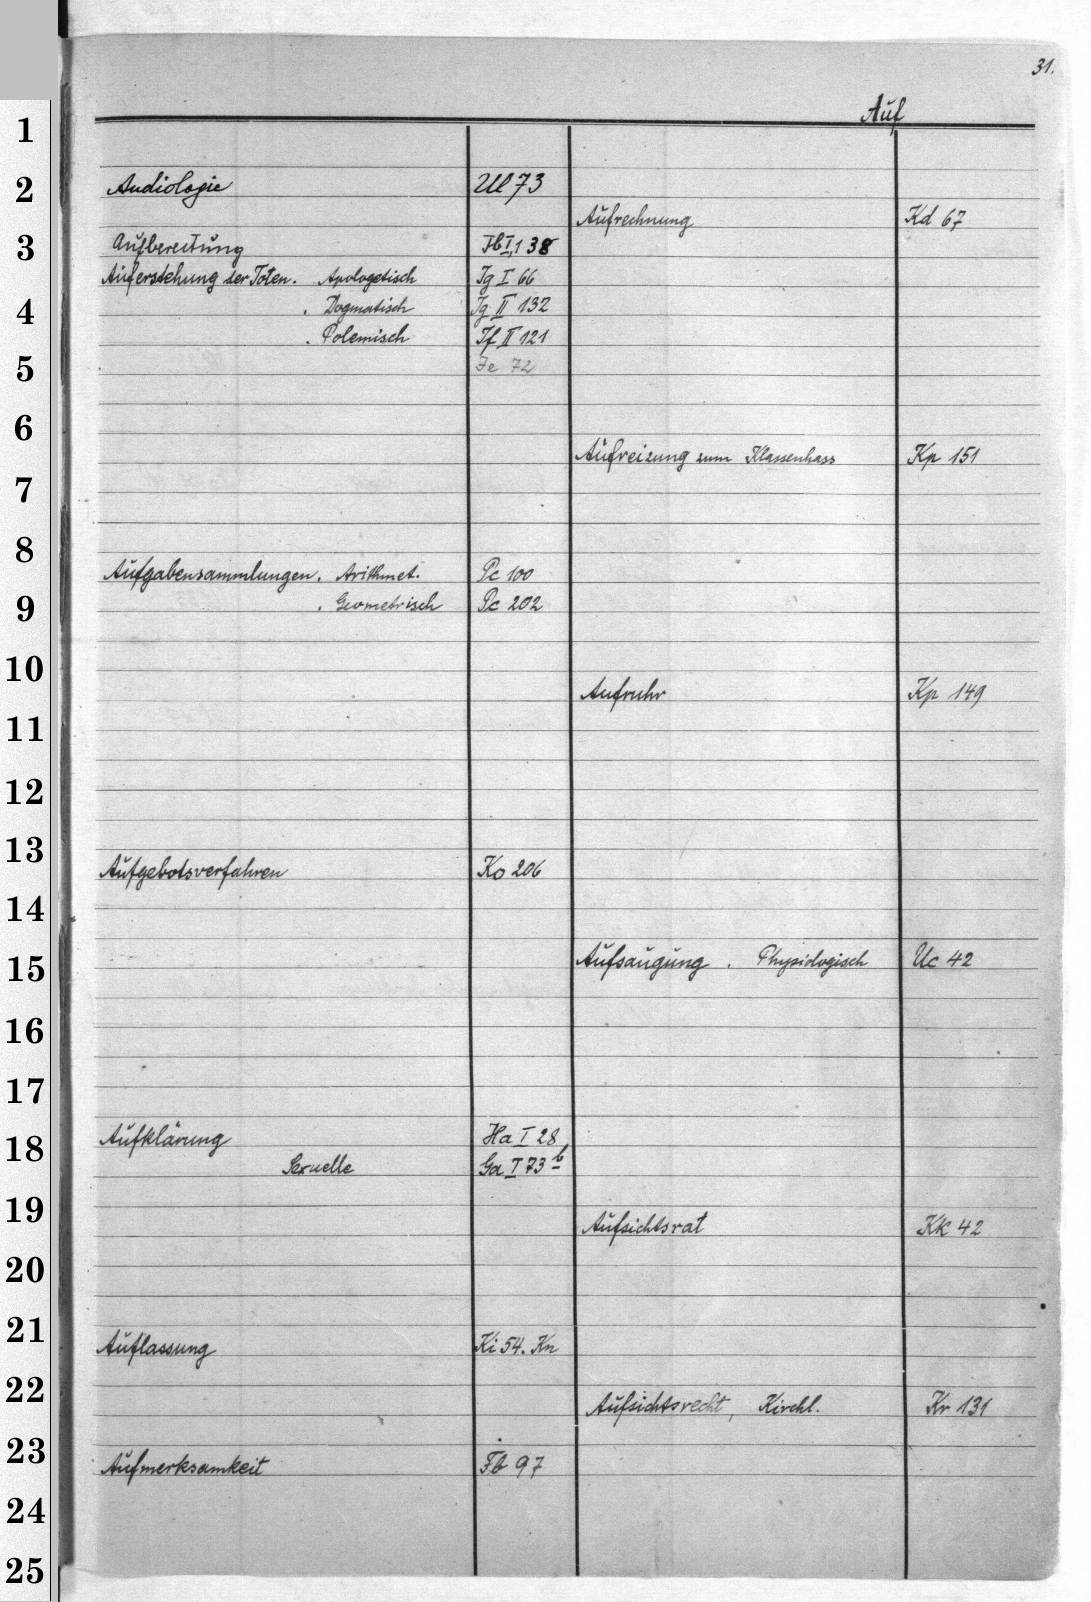 31.
Auf
1
2
3
4
5
6
7
8
9
10
11
12
13
14
15
16
17
18
19
20
21
22
23
24
25
Audiologie Ul 73
Aufbereitung Ib I,1 38
Auferstehung der Toten. Apologetisch Ig I 66
. Dogmatisch Ig II 132
. Polemisch If II 121
Ie 72
Aufgabensammlungen. Arithmet. Pc 100
. Geometrisch Pc 202
Aufgebotsverfahren Ko 206
Aufklärung Ha I 28
Sexuelle Ga I 73 b
Auflassung Ki 54. Kn
Aufmerksamkeit Fb 97
Aufrechnung Kd 67
Aufreizung zum Klassenhass Kp 151
Aufruhr Kp 149
Aufsaugung . Physiologisch Uc 42
Aufsichtsrat Kk 42
Aufsichtsrecht, Kirchl. Kr 131